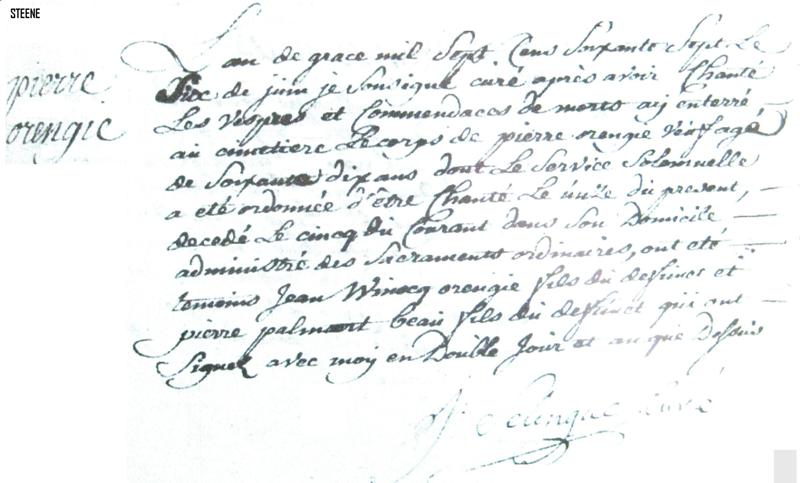 STEENE
pierre
orengie
L'an de grace mil Sept Cens Soixante Sept Le
Six de juin je Sousigne curé après avoir Chanté
Les vespres et Commendaces de morts aij enterré
au cimettiere Le corps de pierre orengie veuf agé
de Soixante dix ans dont Le Service Solemnelle
a eté ordonnée d'être Chanté Le unze du present,
decedé Le cincq du Courant dans Son Domicile
administré des Sacraments ordinaires, ont eté
temoins Jean Winocq orengie fils du deffunct et
pierre palmaert beau fils du deffunct qui ont
Signez avec moy en Double Jour et an que Dessus
curé